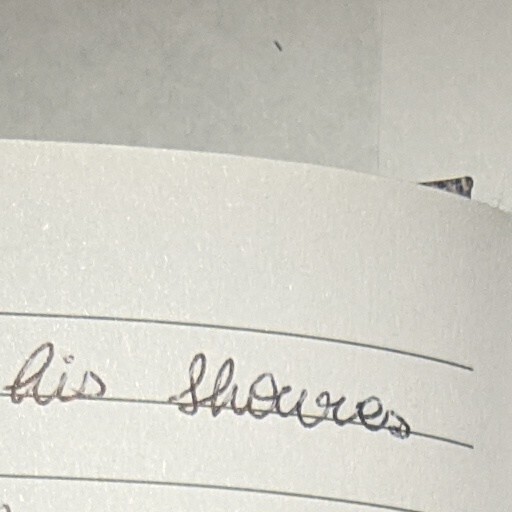 his shoures